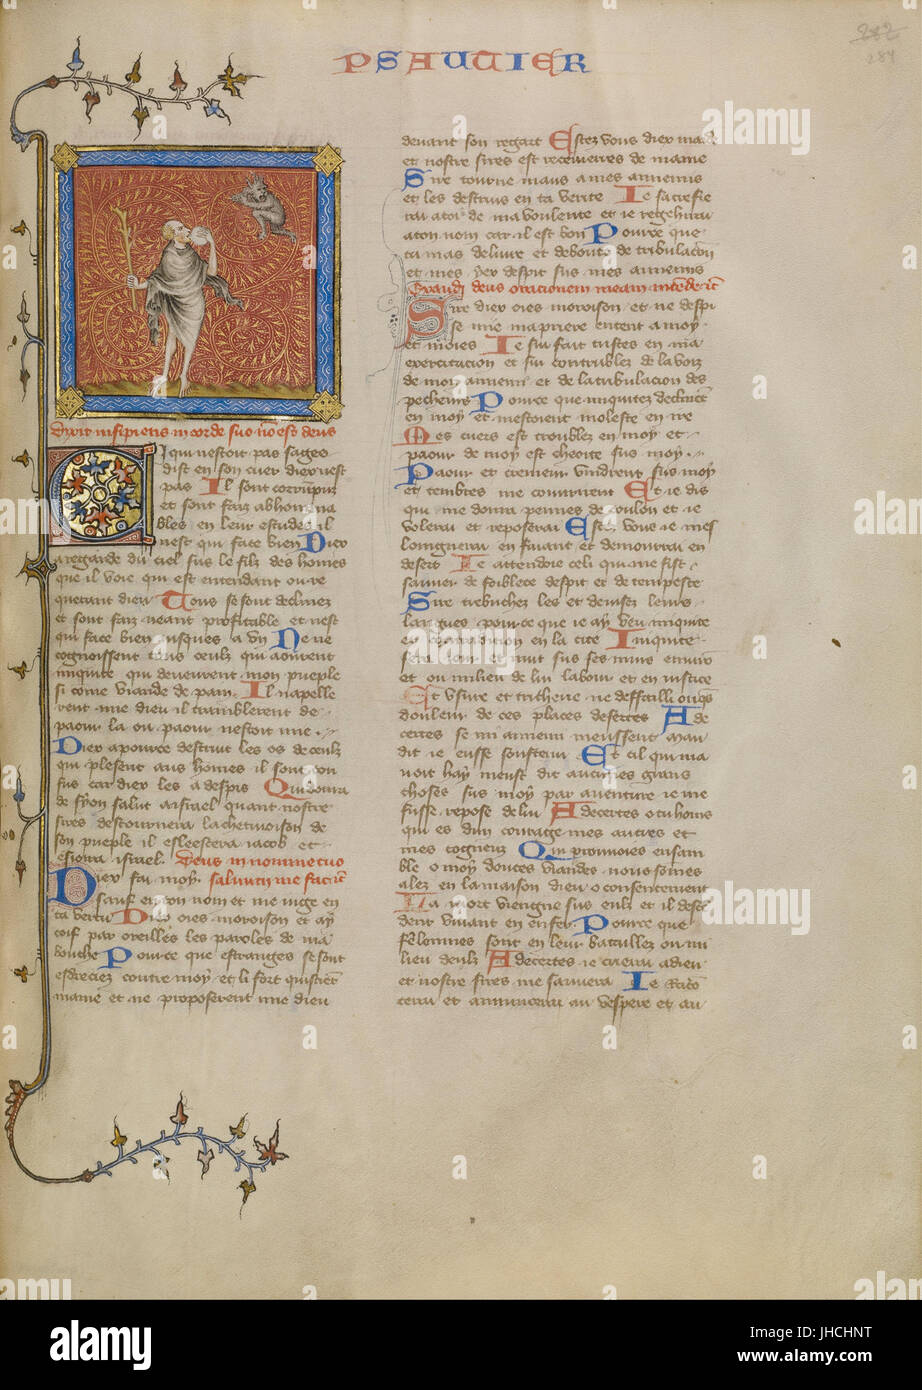 PSAUTIER
282
284
Dixit insipiens in corde suo non est deus
Cil qui nestoit pas sages
dist en son cuer diex nest
pas Il sont corrumpuz
et sont faiz abhomina
bles en leur estudes il
nest qui face bien Diex
a regarde du ciel sus le filz des homes
que il voie qui est entendant ou re
querant dieu Tous se sont declinez
et sont faiz neant profitable et nest
qui face bien jusques a un Ne ne
cognoissent tous ceulz qui aourent
iniquite qui deveurent mon pueple
si come viande de pain Il napelle
rent mie dieu il tramblerent de
paour la ou paour nestoit mie
Diex a pource destruit les os de ceulz
qui plesent aus homes il sont con
fus car diex les a despis Qui donra
de syon salut a israel quant nostre
sires destournera la chetivoison de
son pueple il esleescera iacob et
esioira israel. Deus in nomine tuo
Diex fai moy salvum me fac
sauf en ton nom et me iuge en
ta vertu Diex oies moroison et ay
coif par oreilles les paroles de ma
bouche Pource que estranges se sont
esdreciez contre moy et li fort quistrent
mame et ne proposerent mie dieu
devant son regart Estez vous diex maide
et nostre sires est receverres de mame
Sire tourne maus a mes annemis
et les destruis en ta verite Je sacrefie
rai a toi de ma voulente et ie regehirai
a ton nom car il est bon Pource que
tu mas delivre et deboute de tribulacion
et mes yex despit sus mes annemis
Exaudi deus orationem meam
Sire diex oies moroison et ne despi
se mie ma priere entent a moy
et moies Je sui fait tristes en ma
exercitacion et sui controublez de la voiz
de mon annemi et de la tribulacion des
pecheurs Pource que iniquitez declinerent
en moy et mestoient moleste en ire
Mes cuers est troublez en moy et
paour de moy est cheoite sus moy
Paour et cremeur vindrent sus moy
et tenebres me couvrirent Et ie dis
qui me donra pennes de coulon et ie
volerai et reposerai Estez vous ie mes
loingnerai en fuiant et demourrai en
desert Je attendoie celi qui me fist
sauver de foiblece despit et de tempeste
Sire trebuchez les et devisez leurs
langues pource que ie ay veu iniquite
et contradicion en la cite Iniquite
sera iour et nuit sus ses murs environ
et ou milieu de lui labour et en iustice
Et usure et tricherie ne deffailli onques
douleur de ces places desertes A de
certes se mi annemi meussent mau
dit ie eusse souffert Et cil qui ma
voit hay meust dit aucunes grans
choses sus moy par aventure ie me
fusse repose de lui A decertes o tu homs
qui es dun courage mes autres et
mes cogneuz Qui prennoies ensam
ble o moy douces viandes nous somes
alez en la maison dieu o consentement
La mort viengne sus eulz et il descen
dent vivant en enfer Pource que
felonnies sont en leur habitacles ou mi
lieu deulz A decertes ie criai a dieu
et nostre sires me sauvera Je racon
terai et annuncerai au vespere et au
alamy
a
alamy
Image ID: JHCHNT
www.alamy.com